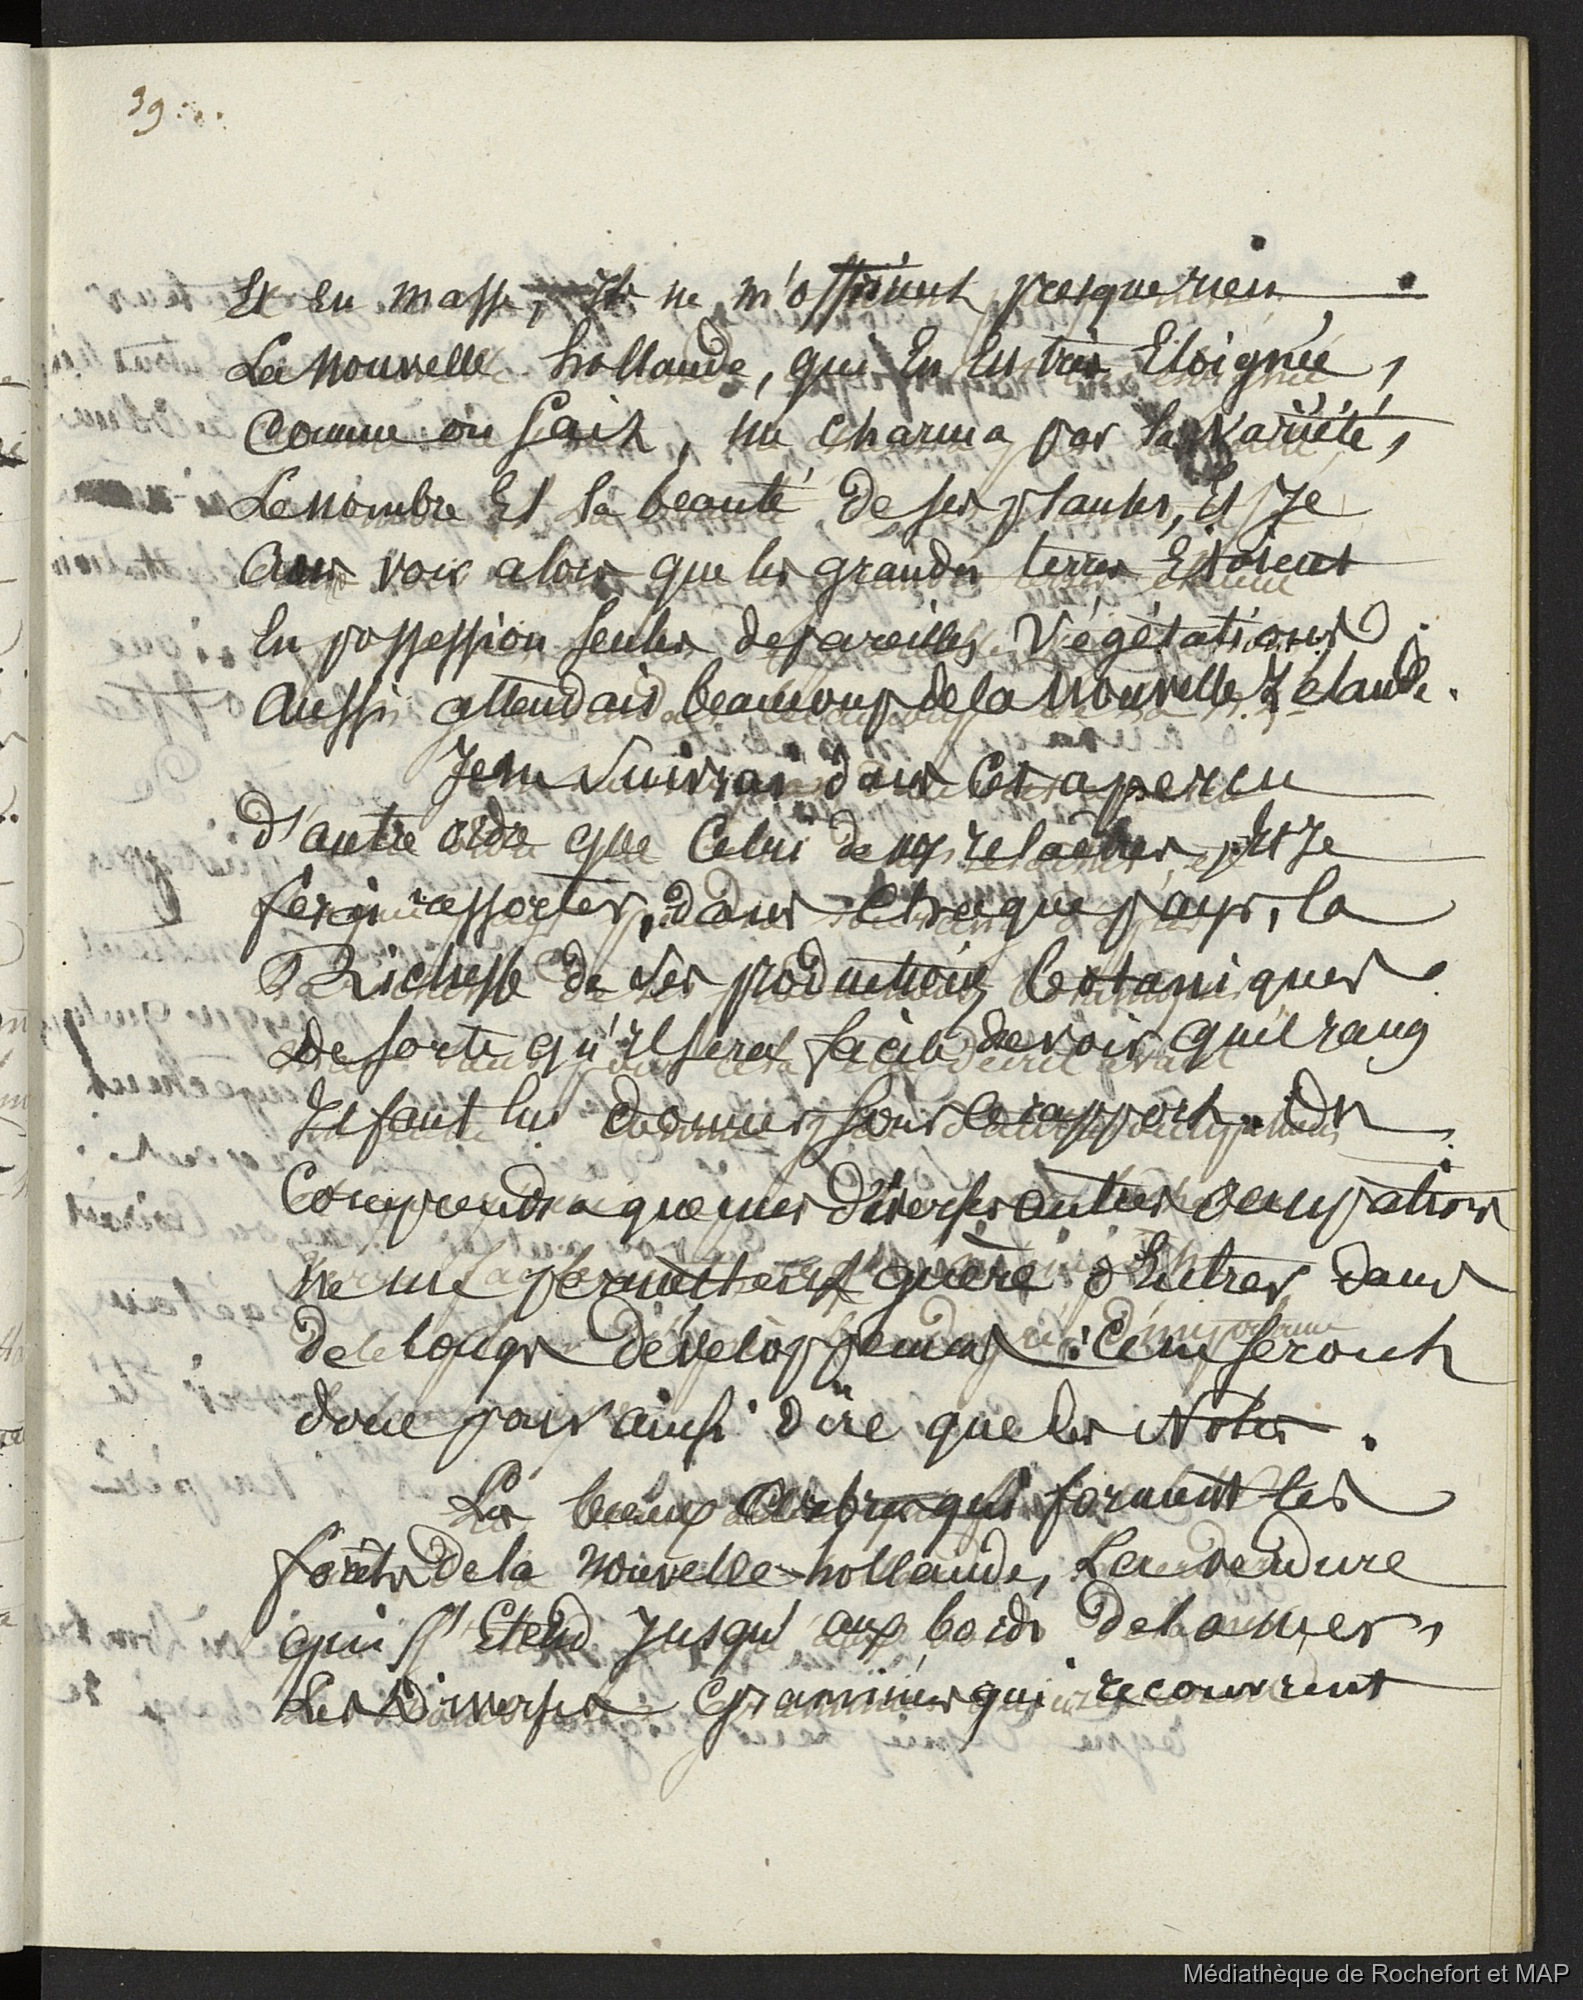 39...
Et en masse, Ils ne m'offrirent presque rien
La Nouvelle hollande, qui En Est très Eloignée,
Comme on Sait, me charma par la variété,
Le nombre Et la beauté de ses plantes, Et Je
crus voir alors que les grandes terres Etoient
En possession seules de pareilles Végétations
Aussi attendais beaucoup de la Nouvelle Zélande.
Je ne Suivrai dans Cet aperçu
d'autre ordre que Celui de nos relaches, Et Je
ferai ressortir, dans Chaque pays, la
Richesse de Ses productions botaniques
De sorte qu'Il sera facile de voir quel rang
Il faut lui donner sous le rapport. On
Comprendra que mes diverses autres occupations
ne me permettent guère d'Entrer dans
de longs développemens : Ce ne seront
donc pour ainsi dire que les Notes.
Les beaux Arbres qui forment les
forêts de la Nouvelle-hollande, La verdure
qui s'Etend Jusqu'aux bords de la mer,
Les Diverses Graminées qui recouvrent
Médiathèque de Rochefort et MAP